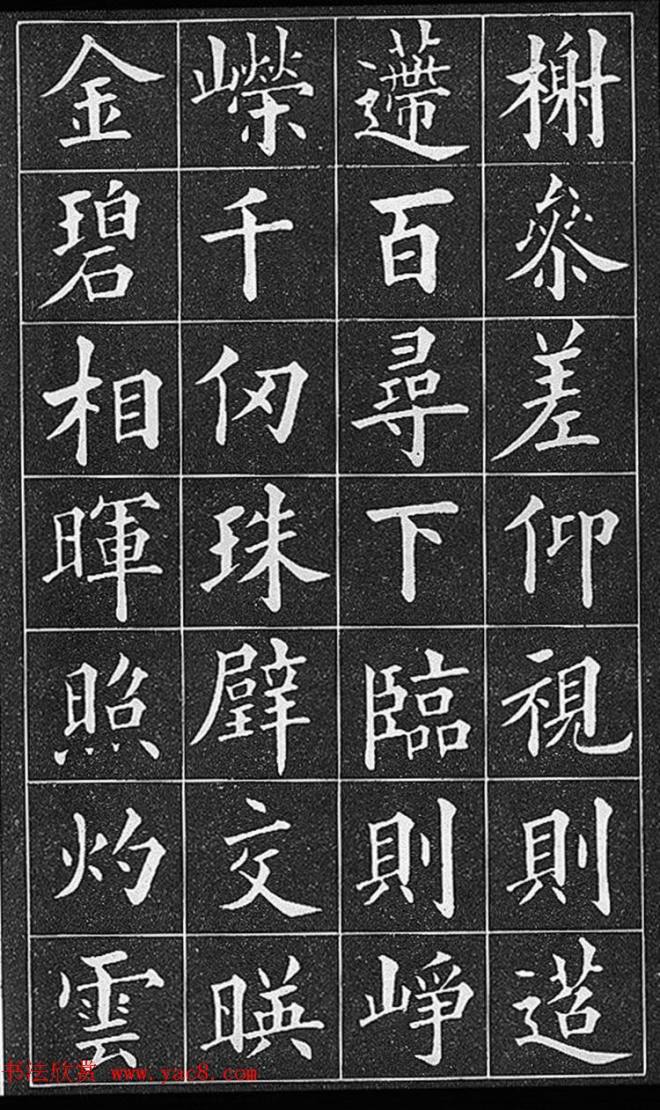 榭參差仰視則迢
遰百尋下臨則崢
嶸千仞珠壁交暎
金碧相暉照灼雲
书法欣赏 www.yac8.com